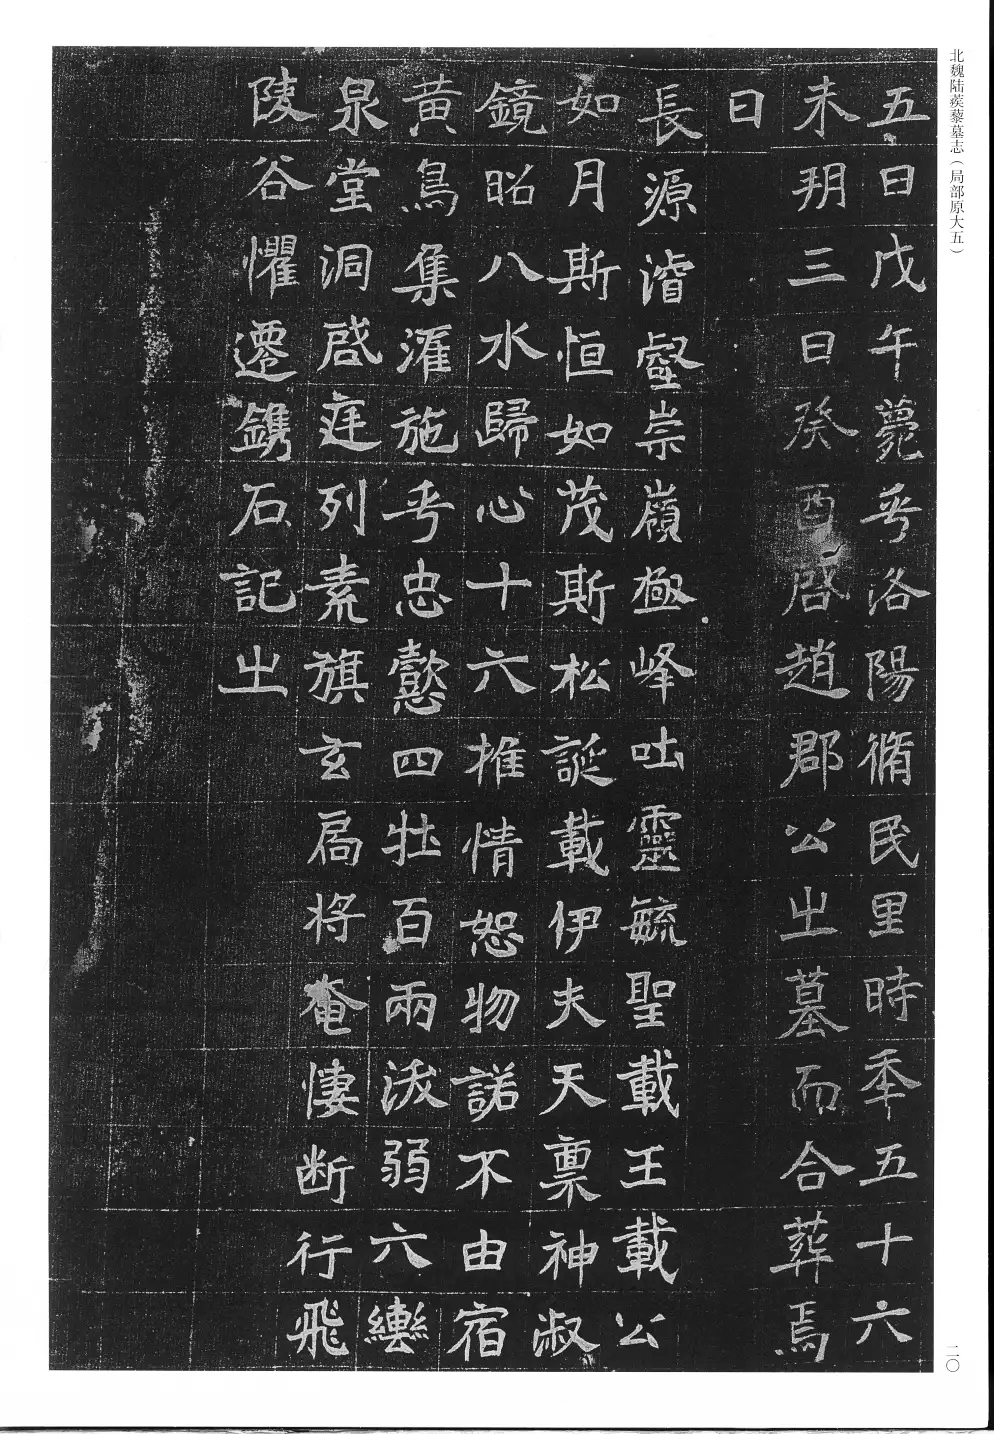 北魏陆蒺藜墓志（局部原大五）
五日戊午薨乎洛陽脩民里時年五十六
未玥三日癸酉啓趙郡公之墓而合葬焉
日
長源濬壑崇嶺極峰吐靈毓聖載王載公
如月斯恒如茂斯松誕載伊夫天稟神淑
鏡昭八水歸心十六推情恕物諾不由宿
黃鳥集灌施乎忠懿四牡百兩弱六轡
泉堂洞啓庭列素旗玄扃將奄悽断行飛
陵谷懼遷鐫石記之
二〇